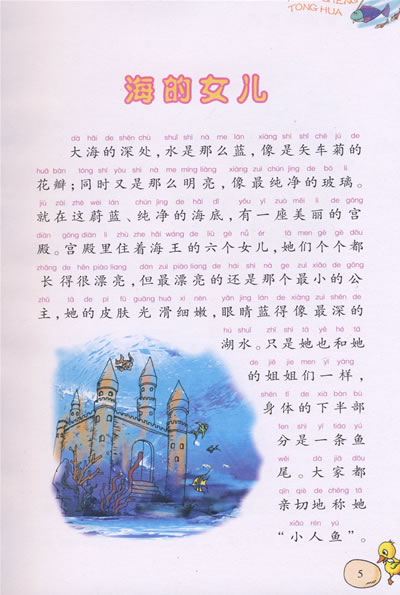 TONG HUA
海的女儿
dà hǎi de shēn chù shuǐ shì nà me lán xiàng shì shǐ chē jú de
大海的深处，水是那么蓝，像是矢车菊的
huā bàn tóng shí yòu shì nà me míng liàng xiàng zuì chún jìng de bō li
花瓣；同时又是那么明亮，像最纯净的玻璃。
jiù zài zhè wèi lán chún jìng de hǎi dǐ yǒu yí zuò měi lì de gōng
就在这蔚蓝、纯净的海底，有一座美丽的宫
diàn gōng diàn lǐ zhù zhe hǎi wáng de liù gè nǚ ér tā men gè gè dōu
殿。宫殿里住着海王的六个女儿，她们个个都
zhǎng de hěn piào liang dàn zuì piào liang de hái shì nà ge zuì xiǎo de gōng
长得很漂亮，但最漂亮的还是那个最小的公
zhǔ tā de pí fū guāng huá xì nèn yǎn jing lán de xiàng zuì shēn de
主，她的皮肤光滑细嫩，眼睛蓝得像最深的
hú shuǐ zhǐ shì tā yě hé tā
湖水。只是她也和她
de jiě jie men yí yàng
的姐姐们一样，
shēn tǐ de xià bàn bù
身体的下半部
fen shì yì tiáo yú
分是一条鱼
wěi dà jiā dōu
尾。大家都
qīn qiè de chēng tā
亲切地称她
xiǎo rén yú
“小人鱼”。
5